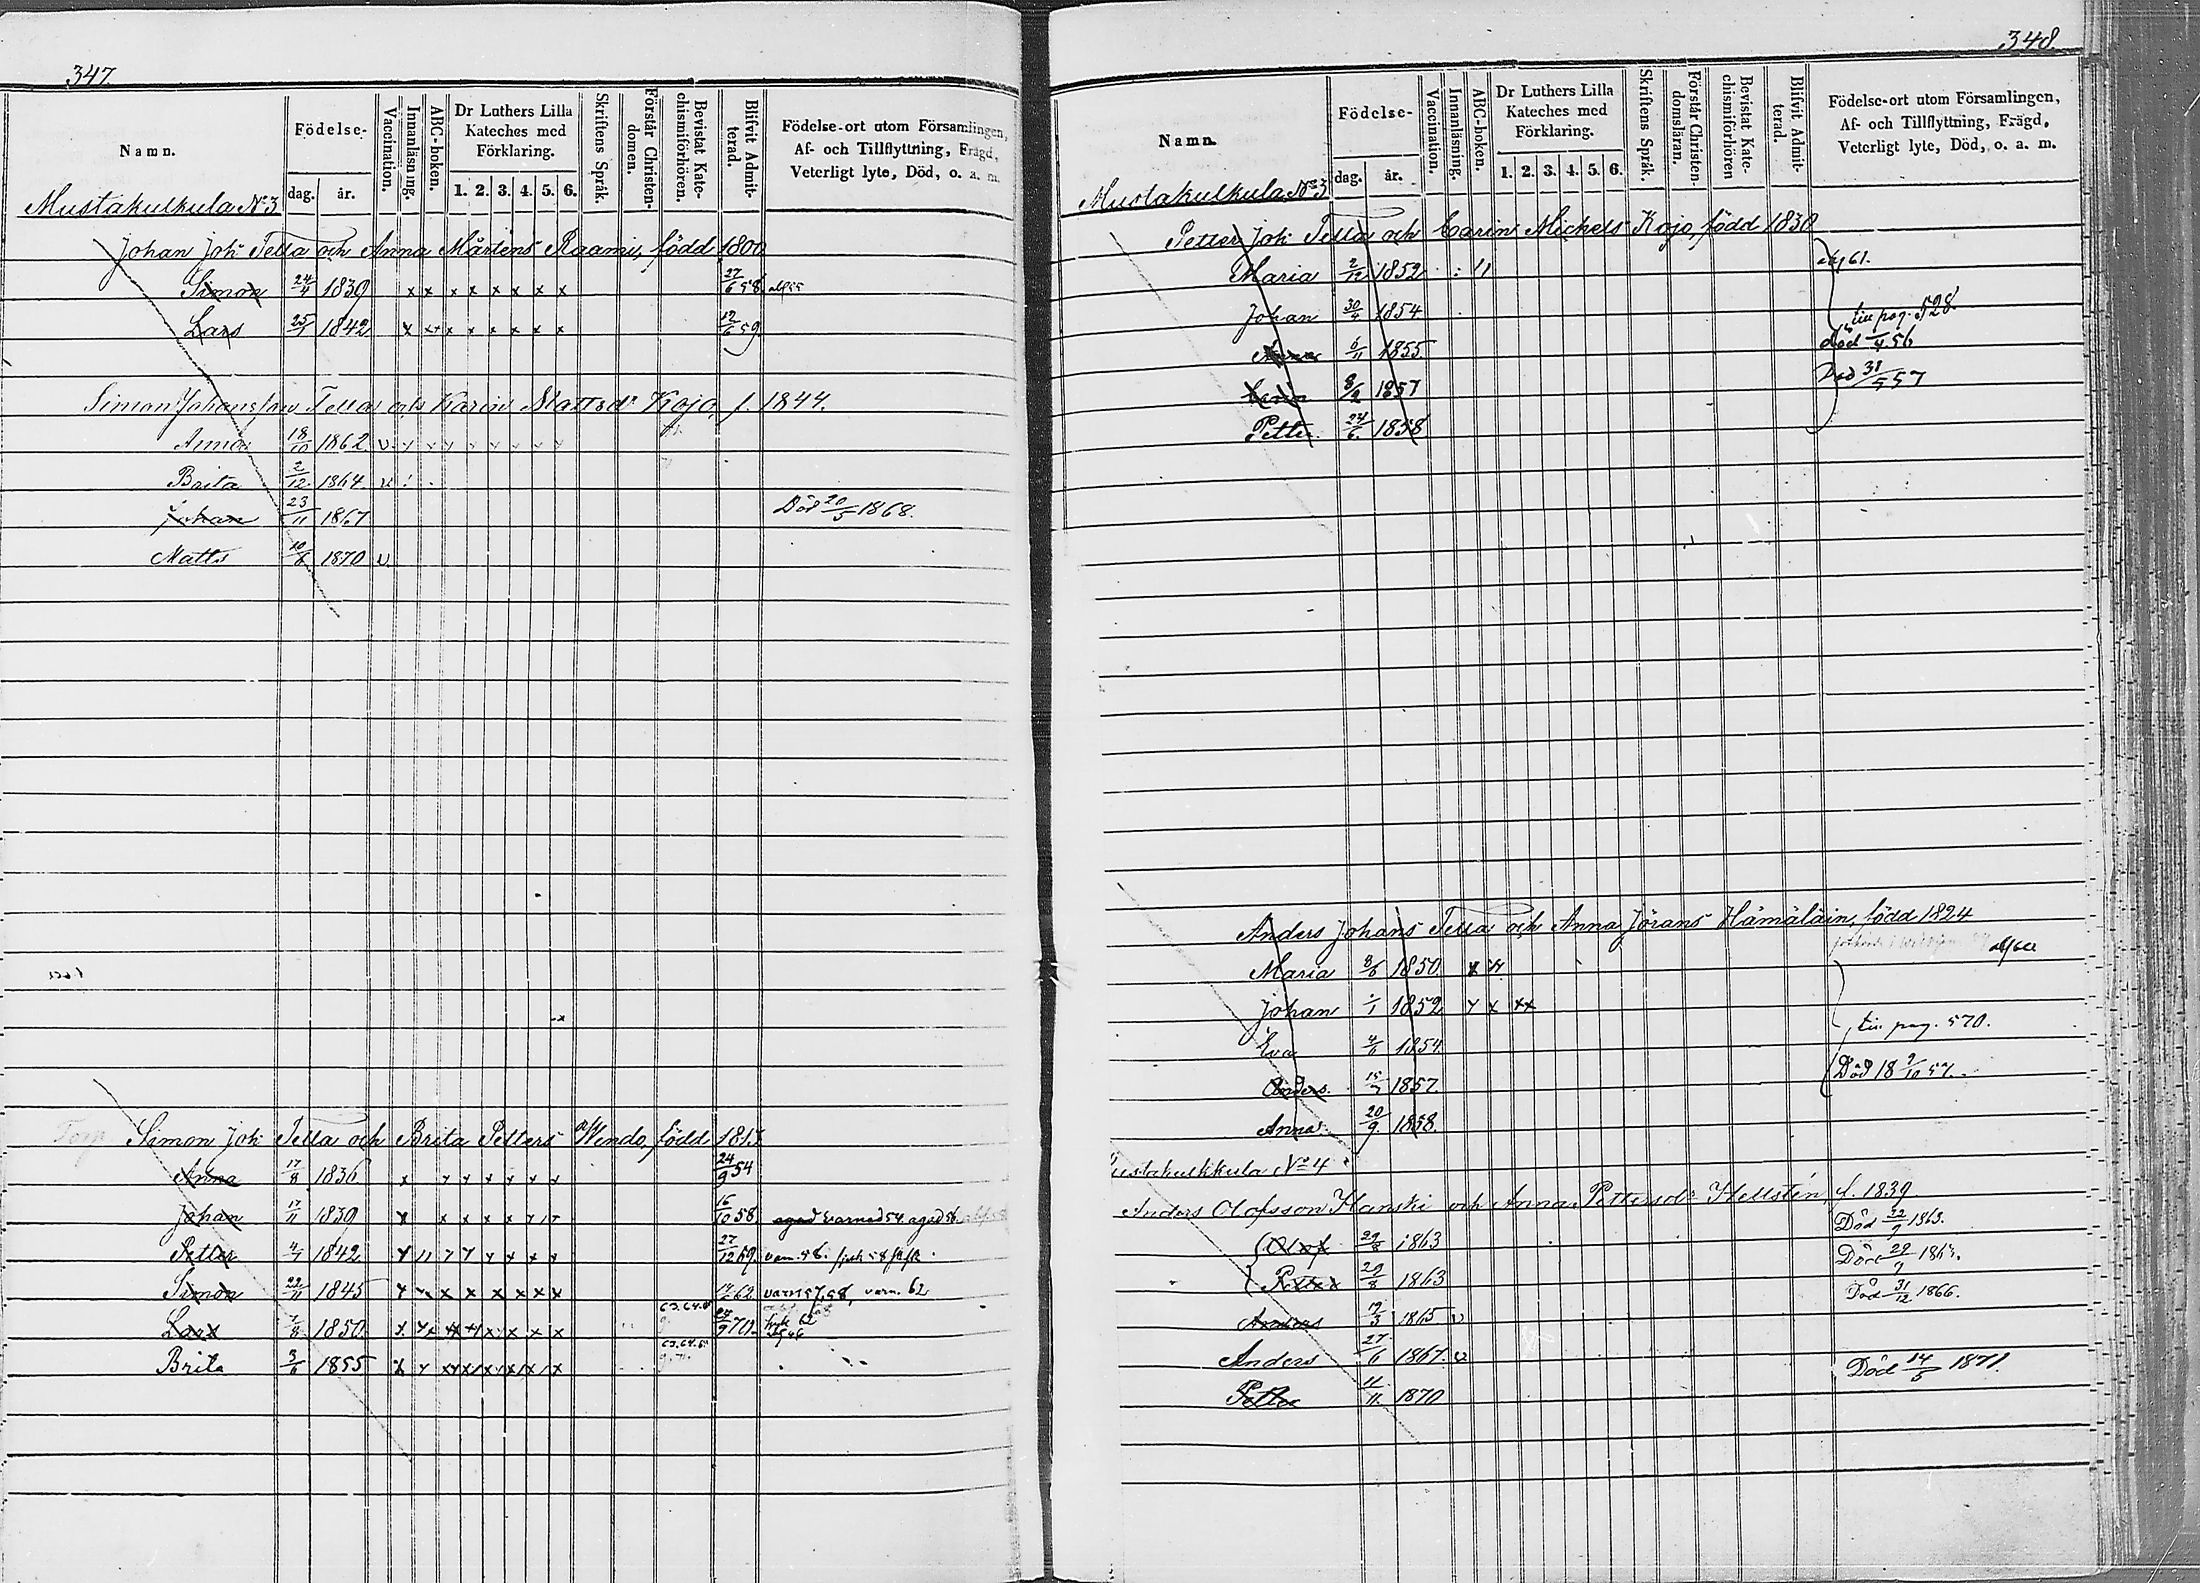 347.
Namn. Födelse- dag. år. Vaccination. Innanläsning. ABC-boken. Dr Luthers Lilla Kateches med Förklaring. 1. 2. 3. 4. 5. 6. Skriftens Språk. Förstår Christendomen. Bevistat Katechismiförhören. Blifvit Admitterad. Födelse-ort utom Församlingen, Af- och Tillflyttning, Frägd, Veterligt lyte, Död, o. a. m.
Mustakulkula No 3
Johan Joh Tella och Anna Mårtens Raami, född 1800
Simon 24/4 1839 x x x x x x x x 27/6 58.
Lars 25/1 1842 x x x x x x x x 12/6 59.
Simon Johansson Tella och Karin Mattsdr Kojo f. 1844.
Anna 18/10 1862 v
Brita 2/12 1864 v
Johan 23/11 1867 Död 20/5 1868.
Matts 10/6 1870 v.
Torp Simon Joh Tella och Brita Petters Wendo, född 1813
Anna 17/8 1836 x 24/9 54
Johan 17/11 1839 x 16/10 58
Petter 4/1 1842 27/12 69.
Simon 22/11 1845 x x x x x x 62 varn 57, 58, varn. 62
Lars 7/8 1850
Brita 3/6 1855
348.
Namn. Födelse- dag. år. Vaccination. Innanläsning. ABC-boken. Dr Luthers Lilla Kateches med Förklaring. 1. 2. 3. 4. 5. 6. Skriftens Språk. Förstår Christendomsläran. Bevistat Katechismiförhören Blifvit Admitterad. Födelse-ort utom Församlingen, Af- och Tillflyttning, Frägd, Veterligt lyte, Död, o. a. m.
Mustakulkula No 3
Petter Joh Tella och Carin Mickels Kojo, född 1830
Maria 2/12 1852 61.
Johan 30/4 1854 till pag. 528
Anna 6/11 1855 död 1/4 56
Carin 8/2 1857 Död 31/5 57
Petter 24/6 1858
Anders Johans Tella och Anna Jörans Hämäläin, född 1824
Maria 8/6 1850
Johan 1/1 1852
Eva 4/6 1854 till pag. 570.
Anders 15/7 1857. Död 18 9/10 57.
Anna 20/9 1858.
ustakulkkula No 4
Anders Olofsson Hanski och Anna Pettersdr Hellstén f. 1839
Olof 29/8 1863 Död 22/9 1863.
Petter 29/8 1863 Död 29/9 1863.
Anders 17/3 1865 v Död 31/12 1866.
Anders 27/6 1867. v
Petter 11/11 1870 Död 14/5 1871.